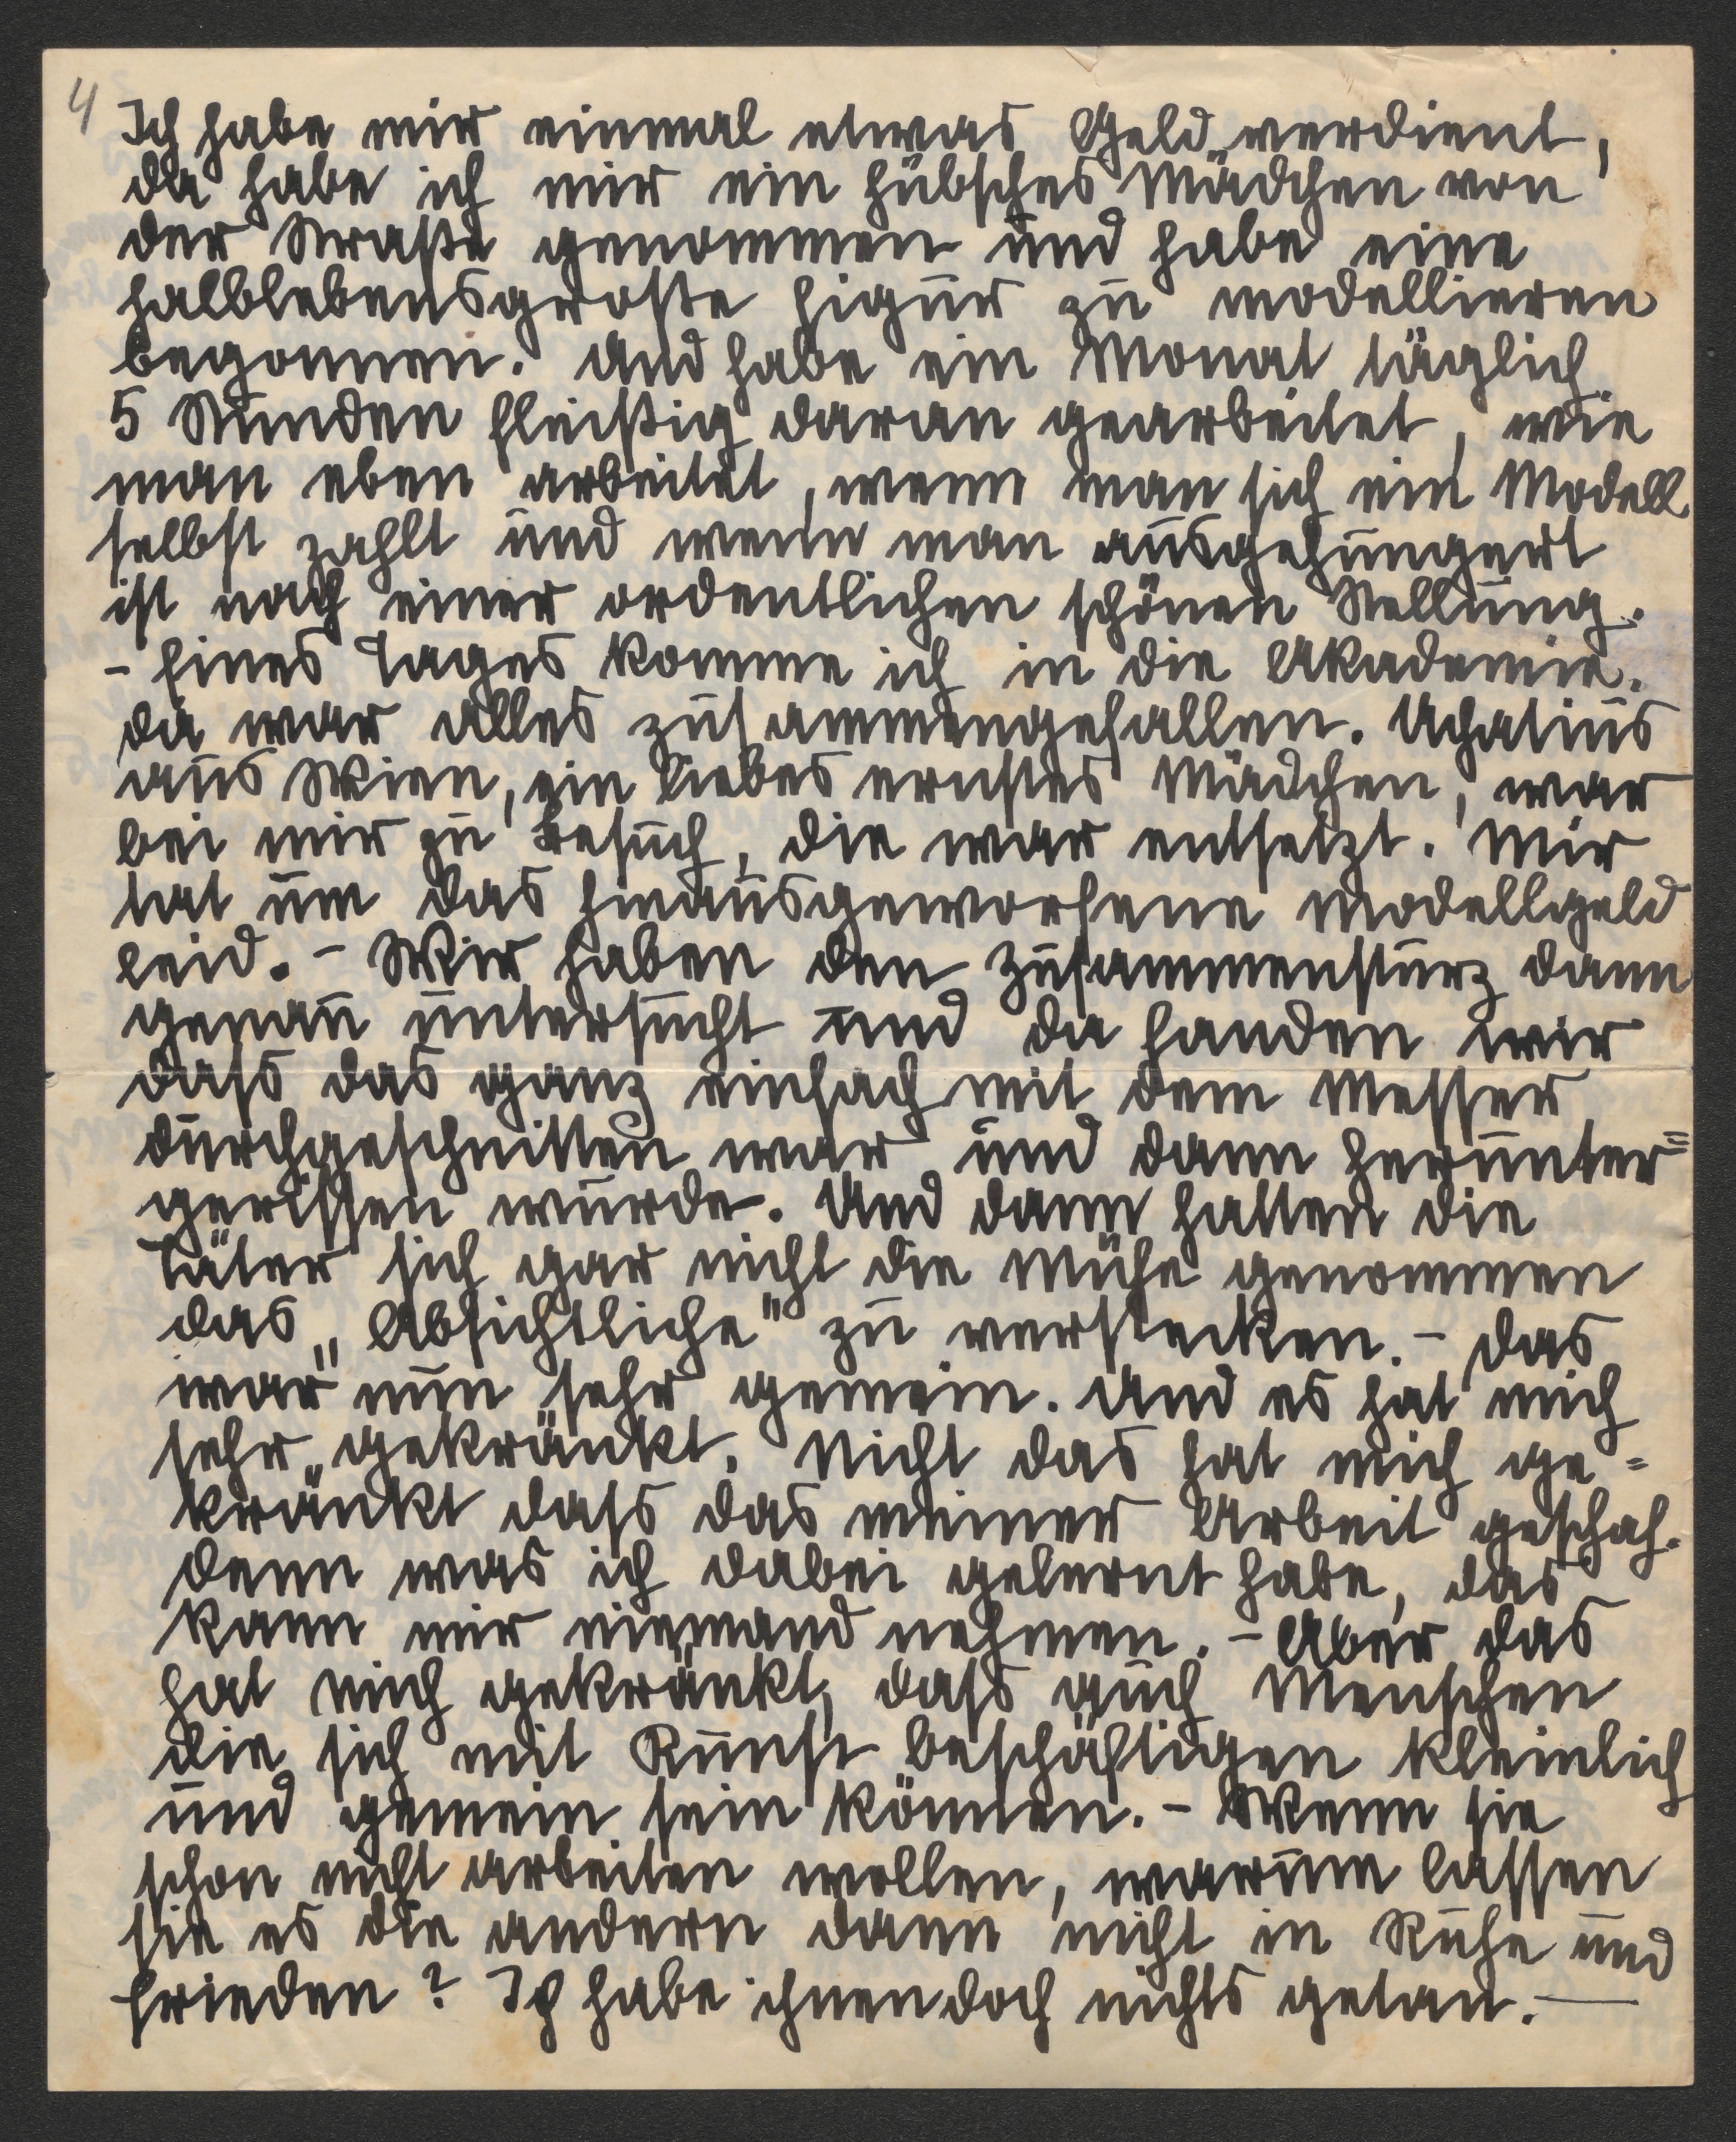 4
Ich habe mir einmal etwas Geld verdient,
da habe ich mir ein hübsches Mädchen von
der Straße genommen und habe eine
halblebensgroße Figur zu modellieren
begonnen. Und habe ein Monat täglich
5 Stunden fleißig daran gearbeitet, wie
man eben arbeitet, wenn man sich ein Modell
selbst zahlt und wenn man ausgehungert
ist nach einer ordentlichen schönen Stellung.
- Eines Tages komme ich in die Akademie.
da war alles zusammengefallen. Uchatius
aus Wien, ein liebes ernstes Mädchen, war
bei mir zu Besuch, die war entsetzt. Mir
tat um das hinausgeworfene Modellgeld
leid. - Wir haben den Zusammensturz dann
genau untersucht und da fanden wir
dass das ganz einfach mit dem Messer
durchgeschnitten war und dann herunter=
gerissen wurde. Und dann hatten die
Täter sich gar nicht die Mühe genommen
das „Absichtliche" zu verstecken. - Das
war nun sehr gemein. Und es hat mich
sehr gekränkt. Nicht das hat mich ge=
kränkt dass das meiner Arbeit geschah.
denn was ich dabei gelernt habe, das
kann mir niemand nehmen. - Aber das
hat mich gekränkt, dass auch Menschen
die sich mit Kunst beschäftigen kleinlich
und gemein sein können. - Wenn sie
schon nicht arbeiten wollen, warum lassen
sie es die andern dann nicht in Ruhe und
Frieden? Ich habe ihnen doch nichts getan. —